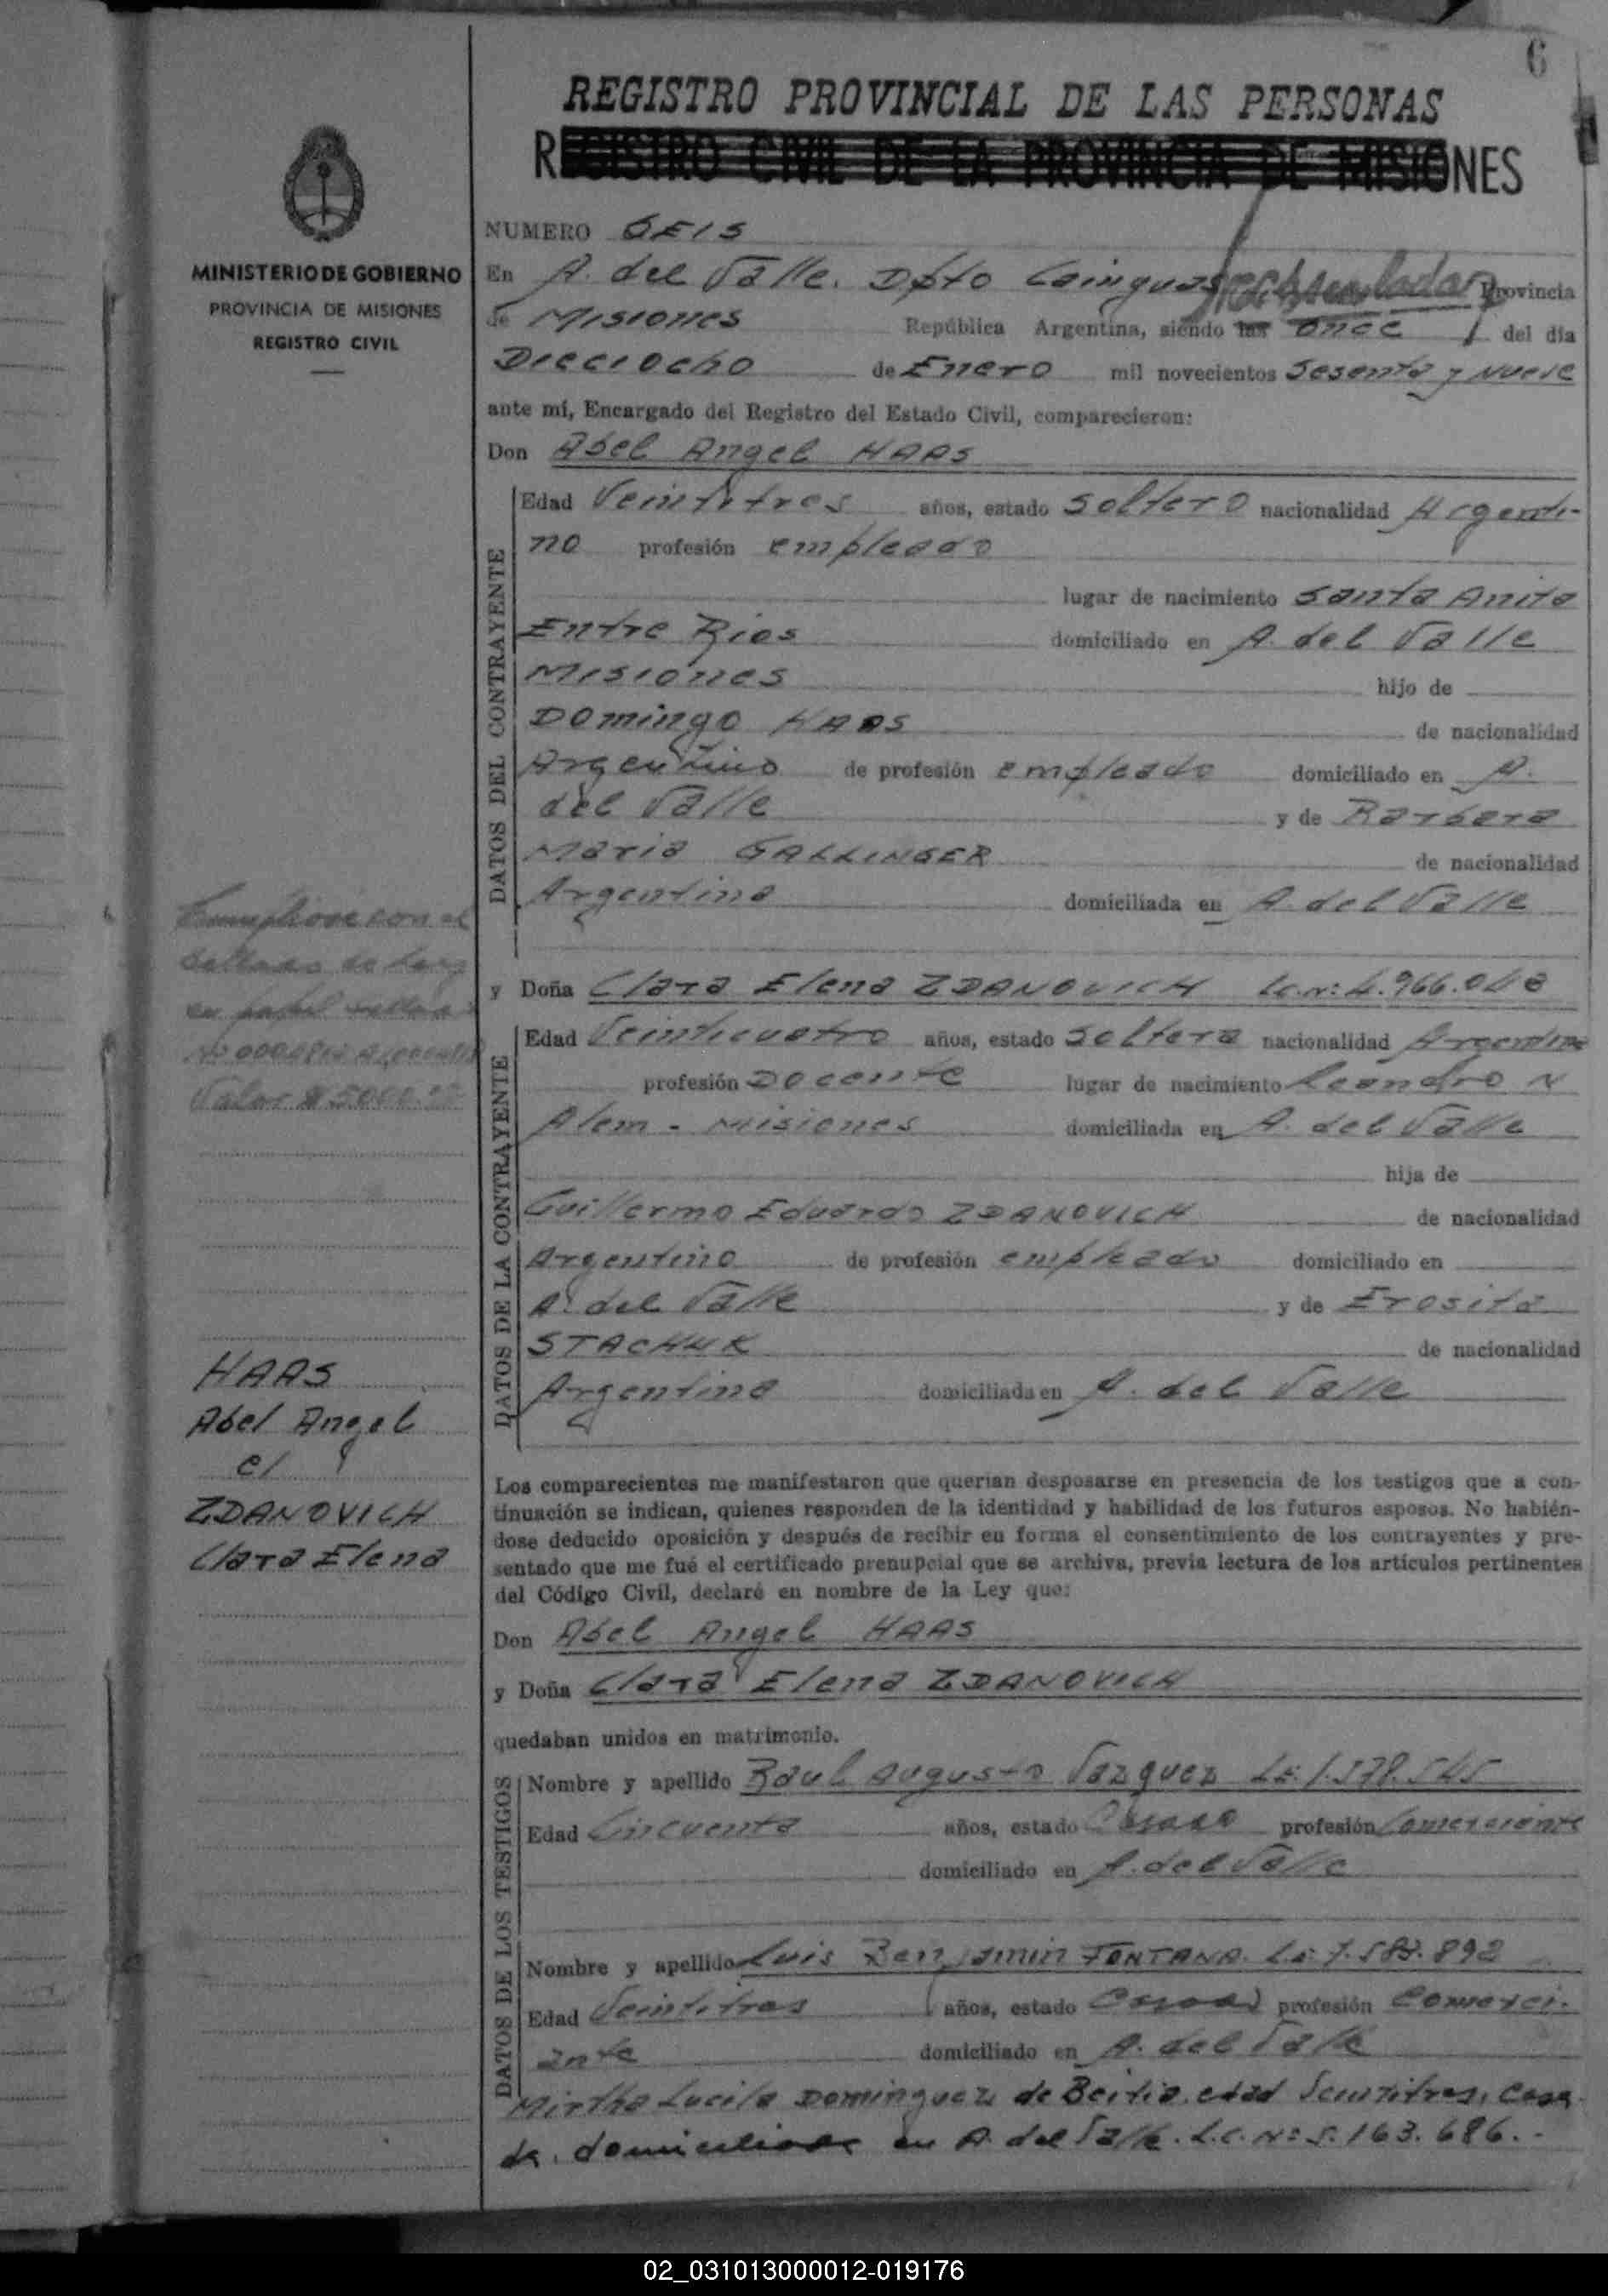 6
REGISTRO PROVINCIAL DE LAS PERSONAS
REGISTRO CIVIL DE LA PROVINCIA DE MISIONES
MINISTERIO DE GOBIERNO
PROVINCIA DE MISIONES
REGISTRO CIVIL
NUMERO SEIS
En A. del Valle. Dpto Cainguas Provincia
de Misiones República Argentina, siendo las once del día
Dieciocho de Enero mil novecientos Sesenta y Nueve
ante mí, Encargado del Registro del Estado Civil, comparecieron:
Don Abel Angel HAAS
DATOS DEL CONTRAYENTE
Edad Veintitres años, estado soltero nacionalidad Argenti-
no profesión empleado
lugar de nacimiento Santa Anita
Entre Rios domiciliado en A. del Valle
Misiones hijo de
Domingo HAAS de nacionalidad
Argentino de profesión empleado domiciliado en A.
del Valle y de Barbara
Maria GALLINGER de nacionalidad
Argentina domiciliada en A. del Valle
Cumplióse con el
Sellado de Ley
en papel sellado
Valor $ 5000
y Doña Clara Elena ZDANOVICH Lc.Nº: 4.966.048
DATOS DE LA CONTRAYENTE
Edad Veinticuatro años, estado Soltera nacionalidad Argentina
profesión Docente lugar de nacimiento Leandro N
Alem - Misiones domiciliada en A. del Valle
hija de
Guillermo Eduardo ZDANOVICH de nacionalidad
Argentino de profesión empleado domiciliado en
A. del Valle y de Erosita
STACHUK de nacionalidad
Argentina domiciliada en A. del Valle
HAAS
Abel Angel
c/
ZDANOVICH
Clara Elena
Los comparecientes me manifestaron que querían desposarse en presencia de los testigos que a con-
tinuación se indican, quienes responden de la identidad y habilidad de los futuros esposos. No habién-
dose deducido oposición y después de recibir en forma el consentimiento de los contrayentes y pre-
sentado que me fué el certificado prenupcial que se archiva, previa lectura de los artículos pertinentes
del Código Civil, declaré en nombre de la Ley que:
Don Abel Angel HAAS
y Doña Clara Elena ZDANOVICH
quedaban unidos en matrimonio.
DATOS DE LOS TESTIGOS
Nombre y apellido Raul Augusto Vazquez LE: 1.578.545
Edad Cincuenta años, estado Casado profesión Comerciante
domiciliado en A. del Valle
Nombre y apellido Luis Benjamin FONTANA. L.E: 7.583.892
Edad Veintitres años, estado Casado profesión Comerci-
ante domiciliado en A. del Valle
Mirtha Lucila Dominguez de Beitia, edad Veintitres, Casa-
da, domiciliada en A. del Valle. L.C. Nº: 5.163.686.-
02_031013000012-019176